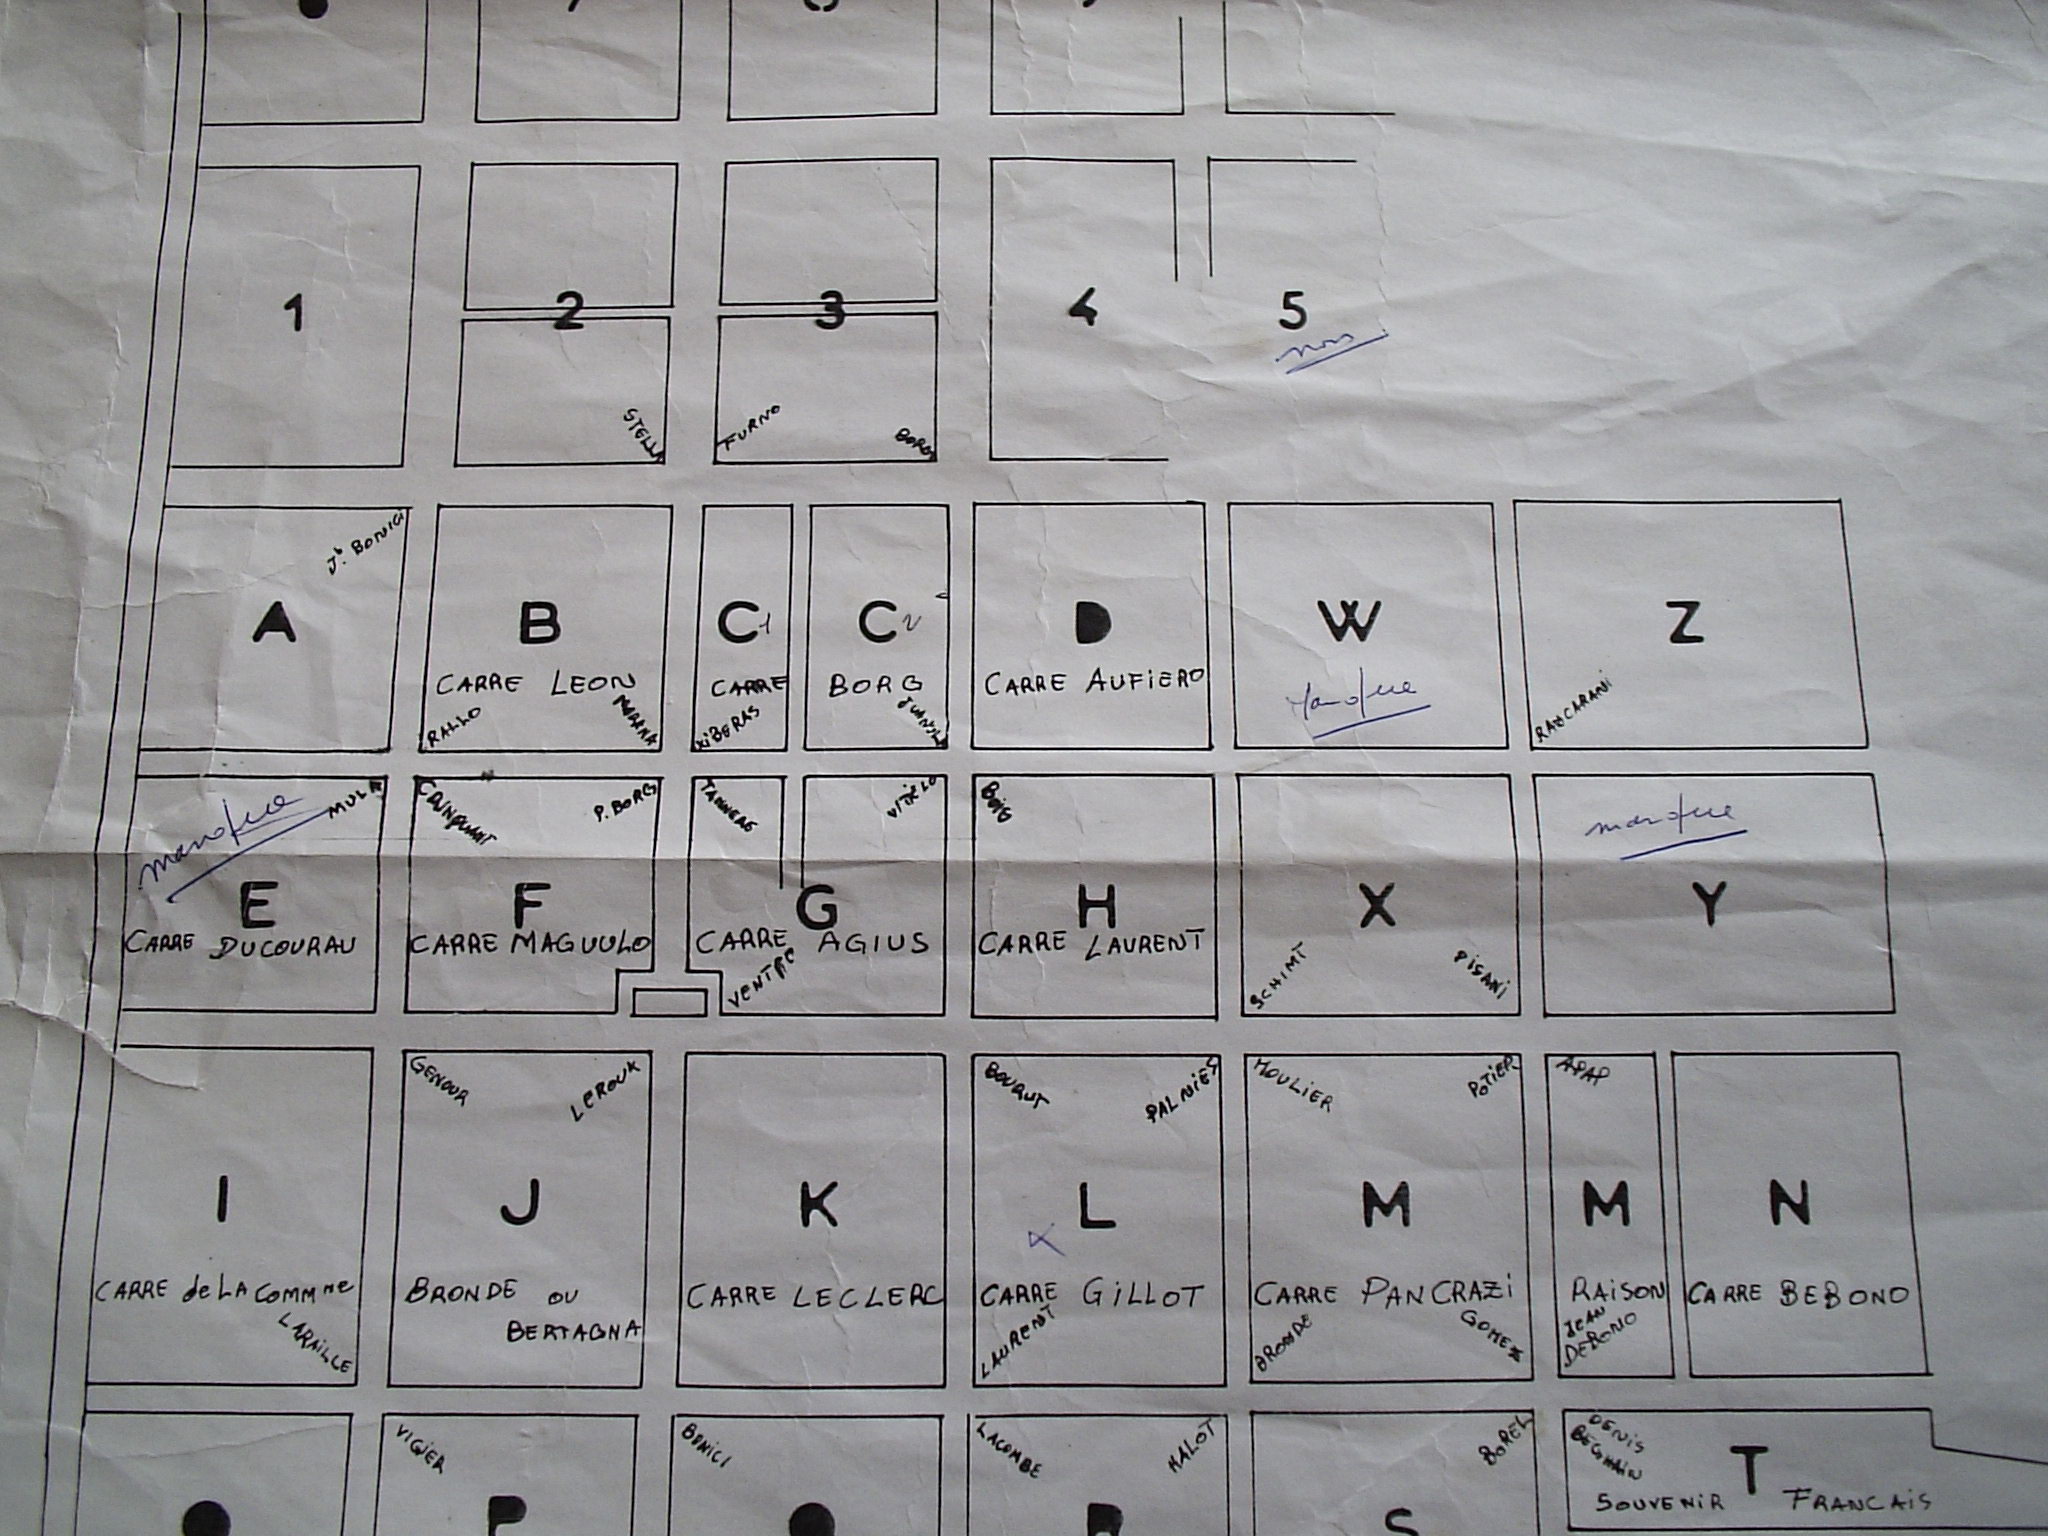 1
2
3
4
5
non
STELLA
FURNO
BORG
Jh BONICI
A
B
C1
C2
D
W
Z
CARRE LEON
CARRE
BORG
CARRE AUFIERO
Manque
RALLO
XIBERAS
RAZCARANI
manque
MULA
P. BORG
VITIELO
BOIG
manque
E
F
G
H
X
Y
CARRE DUCOURAU
CARRE MAGUULO
CARRE AGIUS
CARRE LAURENT
VENTRO
SCHIMT
PISANI
GENOUR
LEROUX
BOURUT
PALNIES
MOULIER
POTIER
APAP
I
J
K
L
M
M
N
CARRE de LA COMMne
BRONDE OU
BERTAGNA
CARRE LECLERC
CARRE GILLOT
CARRE PANCRAZI
RAISON
CARRE BEBONO
LARAILLE
LAURENT
BRONDE
GOMEZ
JEAN
DEBONO
VIGIER
BONICI
LACOMBE
MALOT
BOREL
DENIS
BEGHAIN
P
S
T
SOUVENIR FRANCAIS